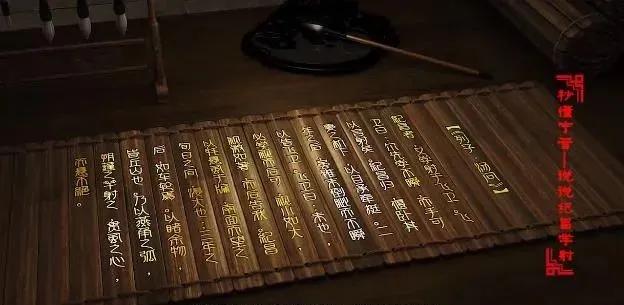 【列子·汤问】
纪昌者,又学射于飞卫。飞
卫曰,尔先学不瞬,而后可
以言射矣。纪昌归,偃卧其
妻之机下,以目承牵挺。二
年之后,虽锥末倒眦而不瞬
以告飞卫。飞卫曰,未也,
必学视而后可。视小如大,
视微如著,而后告我。昌
以牦悬虱于牖,南面而望之
旬日之间,浸大也;三年之
后,如车轮焉。以睹余物,
皆丘山也。乃以燕角之弧,
朔蓬之簳射之,贯虱之心,
而悬不绝。
秒懂宁晋—说说纪昌学射